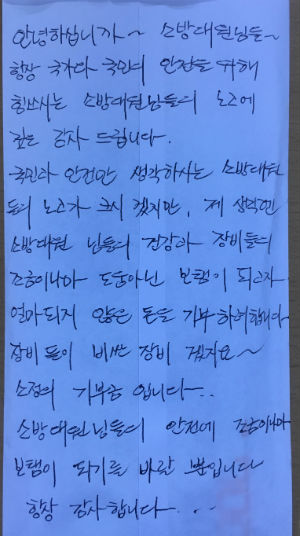 안녕하십니까~ 소방대원님들~
항상 국가와 국민의 안전을 위해
힘쓰시는 소방대원님들의 노고에
깊은 감사 드립니다.
국민과 안전만 생각하시는 소방대원
들의 노고가 크시 겠지만, 제
소방대원 님들의 건강과 장비들의
조금이나마 도움아닌 보탬이 되고자
얼마되지 않은 돈을 기부 하려합니다
장비들이 비싼 장비 겠지요~
소정의 기부금 입니다...
소방대원님들의 안전에 조금이나마
보탬이 되기를 바랄 뿐입니다
항상 감사합니다...